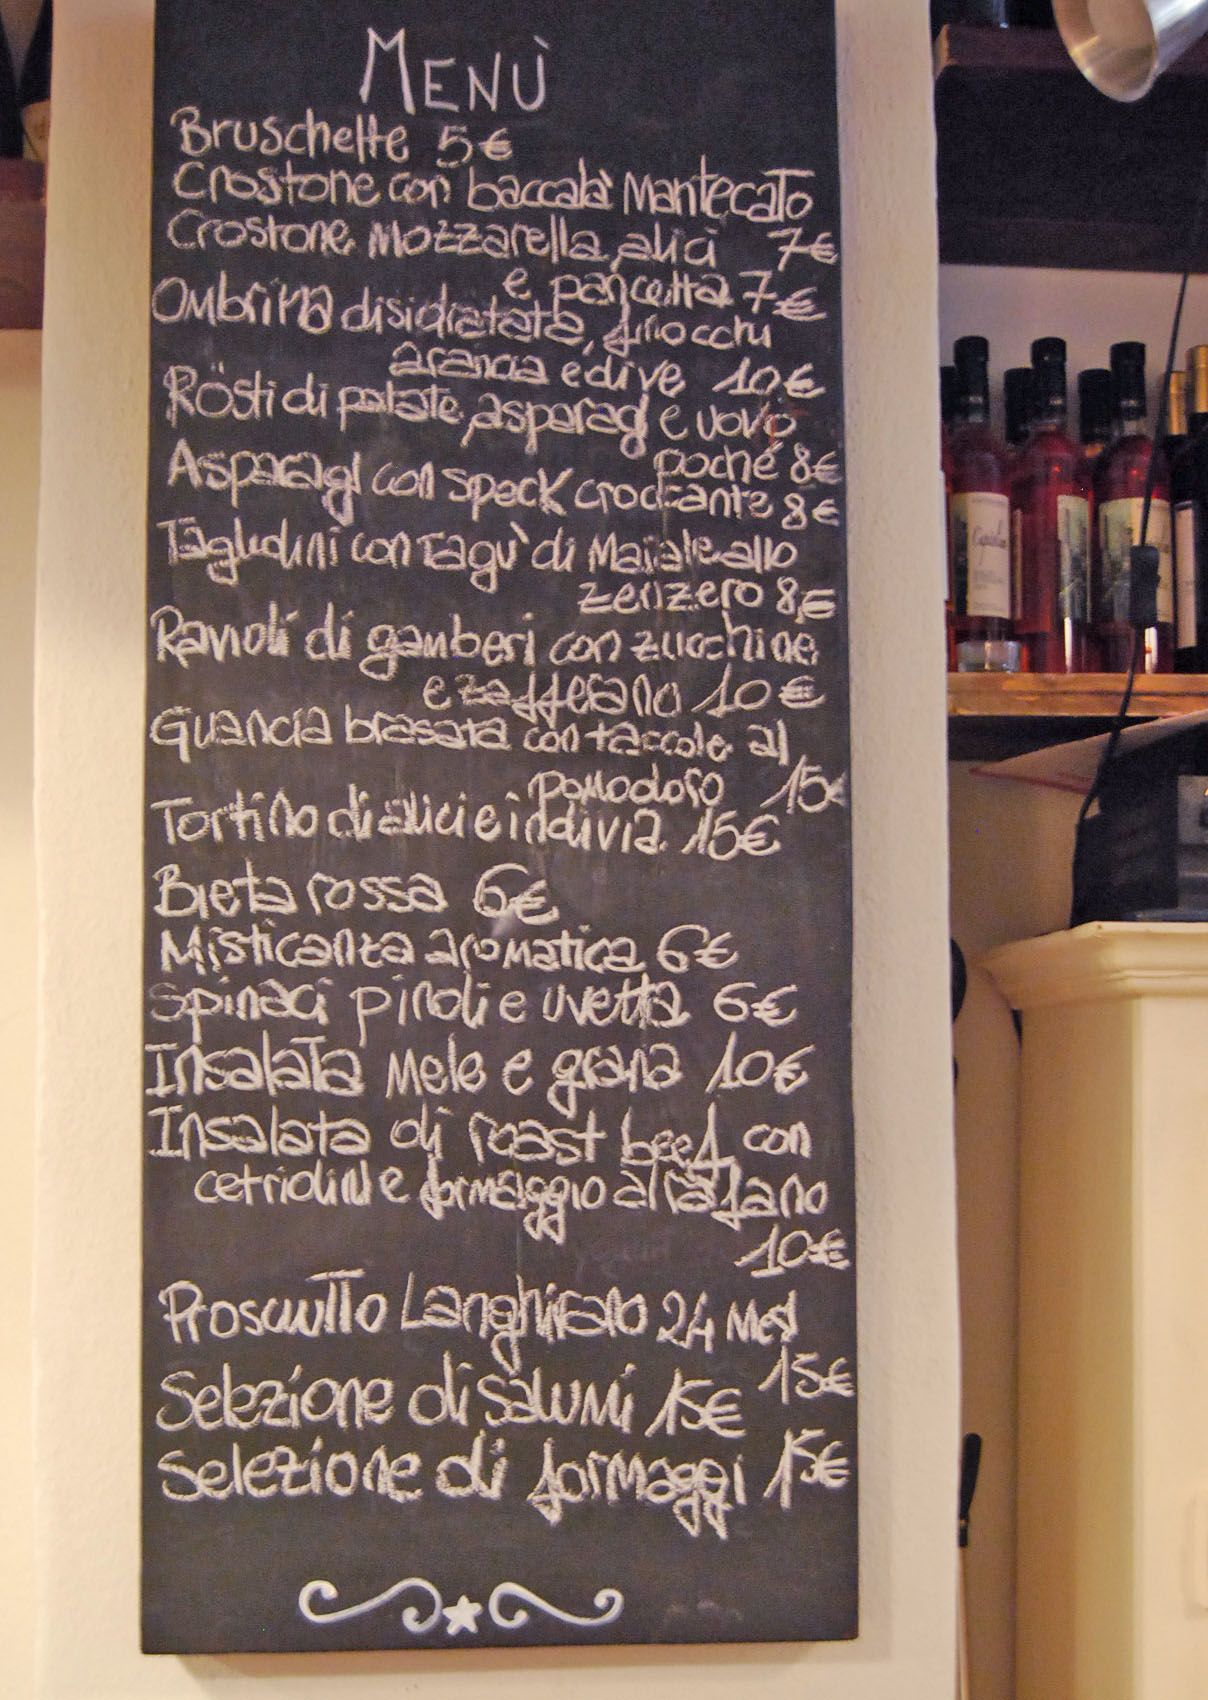 MENÙ
Bruschette 5€
Crostone con baccalà Mantecato
Crostone Mozzarella, alici 7€
e pancetta 7€
Ombrina disidratata, finocchi
arancia e dive 10€
Rösti di patate, asparagi e uovo
poché 8€
Asparagi con speck croccante 8€
Tagliolini con ragù di Maiale allo
zenzero 8,€
Ravioli di gamberi con zucchine
e zafferano 10€
Guancia brasata con taccole al
pomodoro 15€
Tortino di alici e indivia 15€
Bieta rossa 6€
Misticanza aromatica 6€
Spinaci pinoli e uvetta 6€
Insalata Mele e grana 10€
Insalata di roast beef con
cetriolini e formaggio al rafano
10€
Prosciutto Langhirano 24 Mesi
15€
Selezione di salumi 15€
Selezione di formaggi 15€